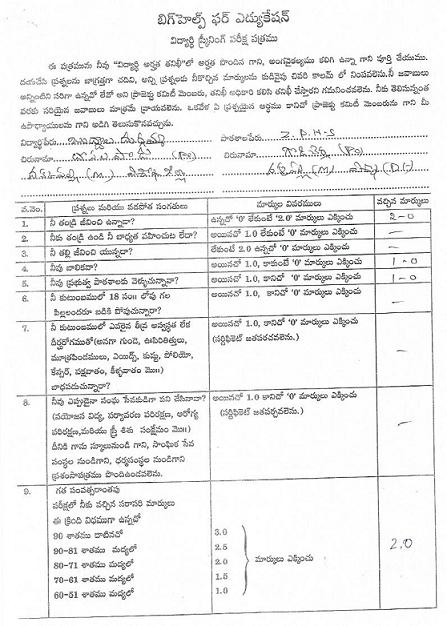 బిగ్‌హెల్ప్ ఫర్ ఎడ్యుకేషన్
విద్యార్థి స్క్రీనింగ్ పరీక్ష పత్రము
ఈ పత్రమును నీవు "విద్యార్థి అర్హత తనిఖీ"లో అర్హత పొందిన గాని, అంగవైకల్యము కలిగి ఉన్నా గాని పూర్తి చేయుము.
దయచేసి ప్రశ్నలను జాగ్రత్తగా చదివి, అన్ని ప్రశ్నలకు నీకొచ్చిన మార్కులను కుడివైపు చివరి కాలమ్ లో నింపవలెను. నీ జవాబులు
అన్నింటిని సరిగా ఉన్నవో లేవో అని ప్రాజెక్టు కమిటీ మెంబరు, తనిఖీ అధికారి కలిసి తనిఖీ చేస్తారని గమనించవలెను. నీకు తెలిసినంత
వరకు సరియైన జవాబులు మాత్రమే వ్రాయవలెను. ఒకవేళ ఏ ప్రశ్నయైన అర్థము కానిచో ప్రాజెక్టు కమిటీ మెంబరును గాని మీ
ఉపాధ్యాయులను గాని అడిగి తెలుసుకొనవచ్చును.
విద్యార్థిపేరు: పాఠశాలపేరు: Z.P.H-S
చిరునామా: (Po) చిరునామా: (Po)
(M.) (M) (D.t)
వ.నెం. ప్రశ్నలు మరియు వడపోత సంగతులు మార్కుల వివరములు వచ్చిన మార్కులు
1. నీ తండ్రి జీవించి ఉన్నాడా? ఉన్నచో '0' లేకుంటే '2.0' మార్కులు ఎక్కించు 2-0
2. నీకు తండ్రి ఉండి నీ బాధ్యత వహించుట లేదా? అయినచో 1.0 లేకుంటే '0' మార్కులు ఎక్కించు —
3. నీ తల్లి జీవించి యున్నదా? లేకుంటే 2.0 ఉన్నచో '0' మార్కులు ఎక్కించు —
4. నీవు బాలికవా? అయినచో 1.0, కాకుంటే '0' మార్కులు ఎక్కించు 1-0
5. నీవు ప్రభుత్వ పాఠశాలకు వెళ్ళుచున్నావా? అయినచో 1.0, కానిచో '0' మార్కులు ఎక్కించు 1-0
6. నీ కుటుంబములో 18 సం॥ లోపు గల అయినచో 1.0, కానిచో '0' మార్కులు ఎక్కించు —
పిల్లలందరూ బడికి పోవుచున్నారా?
7. నీ కుటుంబములో ఎవరైన తీవ్ర అస్వస్థత లేక అయినచో 1.0, కానిచో '0' మార్కులు ఎక్కించు
దీర్ఘరోగముతో(అనగా గుండె, ఊపిరితిత్తులు, (సర్టిఫికెట్ జతపరచవలెను.)
మూత్రపిండములు, ఎయిడ్స్, కుష్టు, పోలియో, —
కేన్సర్, పక్షవాతం, కీళ్ళవాతం మొ॥)
బాధపడుచున్నారా?
8. నీవు ఎప్పుడైనా సంఘ సేవకుడిగా పని చేసినావా? అయినచో 1.0 కానిచో '0' మార్కులు ఎక్కించు
(వయోజన విద్య, పర్యావరణ పరిరక్షణ, ఆరోగ్య (సర్టిఫికెట్ జతపర్చవలెను.)
పరిరక్షణ,మరియు స్త్రీ శిశు సంక్షేమం మొ॥) —
దీనికి గాను స్కూలునుండి గాని, సాంఘిక సేవ
సంస్థల నుండిగాని, ధర్మసంస్థల నుండిగాని
ప్రశంసాపత్రము పొందిఉండవలెను.
9. గత సంవత్సరాంతపు
పరీక్షలో నీకు వచ్చిన సరాసరి మార్కులు
ఈ క్రింది విధముగా ఉన్నచో
90 శాతము దాటినచో 3.0
90-81 శాతము మధ్యలో 2.5
80-71 శాతము మధ్యలో 2.0 మార్కులు ఎక్కించు 2.0
70-61 శాతము మధ్యలో 1.5
60-51 శాతము మధ్యలో 1.0